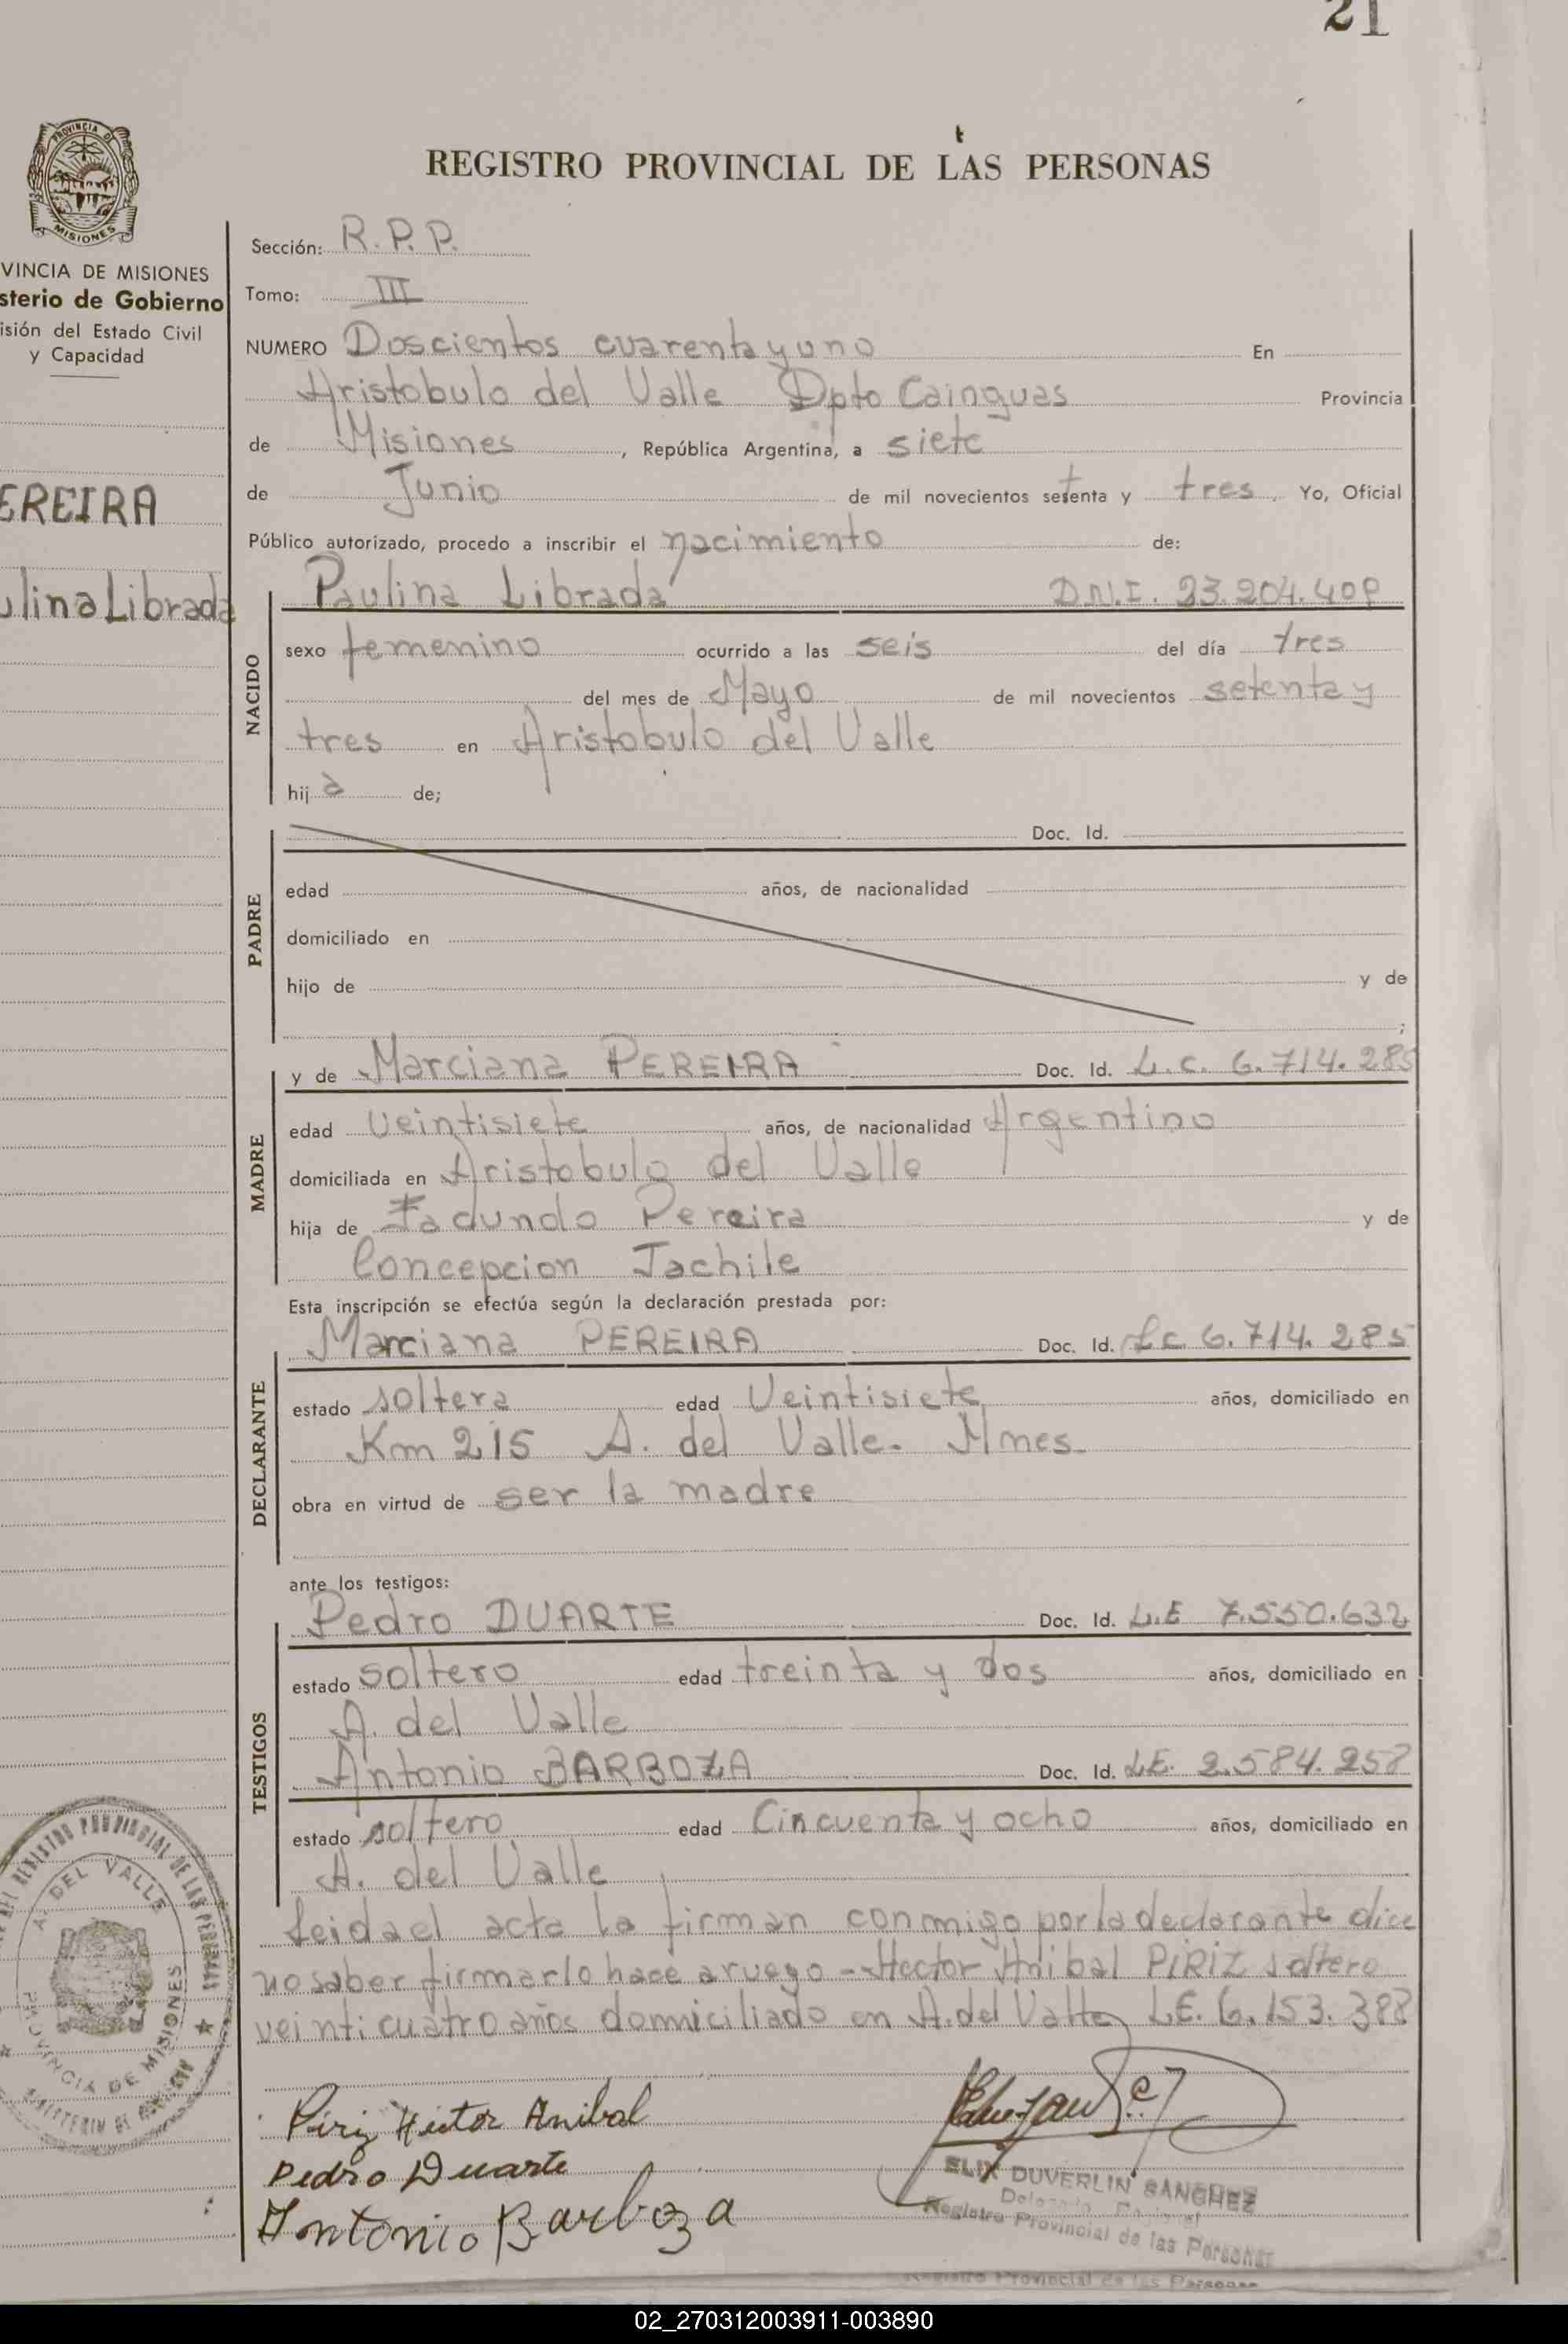 21
REGISTRO PROVINCIAL DE LAS PERSONAS
PROVINCIA DE
MISIONES
VINCIA DE MISIONES
sterio de Gobierno
isión del Estado Civil
y Capacidad
EREIRA
ulina Librada
Sección: R.P.P.
Tomo: III
NUMERO Doscientos cuarenta y uno En
Aristobulo del Valle Dpto Cainguas Provincia
de Misiones, República Argentina, a siete
de Junio de mil novecientos setenta y tres, Yo, Oficial
Público autorizado, procedo a inscribir el nacimiento de:
NACIDO
Paulina Librada D.N.I. 23.204.409
sexo femenino ocurrido a las seis del día tres
del mes de Mayo de mil novecientos setenta y
tres en Aristobulo del Valle
hij a de;
PADRE
Doc. Id.
edad años, de nacionalidad
domiciliado en
hijo de y de
;
MADRE
y de Marciana PEREIRA Doc. Id. L.C. 6.714.285
edad Veintisiete años, de nacionalidad Argentino
domiciliada en Aristobulo del Valle
hija de Facundo Pereira y de
Concepcion Jachile
Esta inscripción se efectúa según la declaración prestada por:
DECLARANTE
Marciana PEREIRA Doc. Id. LC 6.714.285
estado soltera edad Veintisiete años, domiciliado en
Km 215 A. del Valle. Mnes.
obra en virtud de ser la madre
ante los testigos:
TESTIGOS
Pedro DUARTE Doc. Id. L.E 7.550.632
estado soltero edad treinta y dos años, domiciliado en
A. del Valle
Antonio BARBOZA Doc. Id. LE. 2.584.258
estado soltero edad Cincuenta y ocho años, domiciliado en
A. del Valle
Leida el acta la firman conmigo por la declarante dice
no saber firmar lo hace a ruego - Hector Anibal PIRIZ soltero
veinticuatro años domiciliado en A. del Valle LE. 6.153.388
REGISTRO PROVINCIAL DE LAS PERSONAS
A. DEL VALLE
PROVINCIA DE MISIONES
Piriz Hector Anibal
Pedro Duarte
Antonio Barboza
ELIX DUVERLIN SANCHEZ
Registro Provincial de las Personas
Registro Provincial de las Personas
02_270312003911-003890